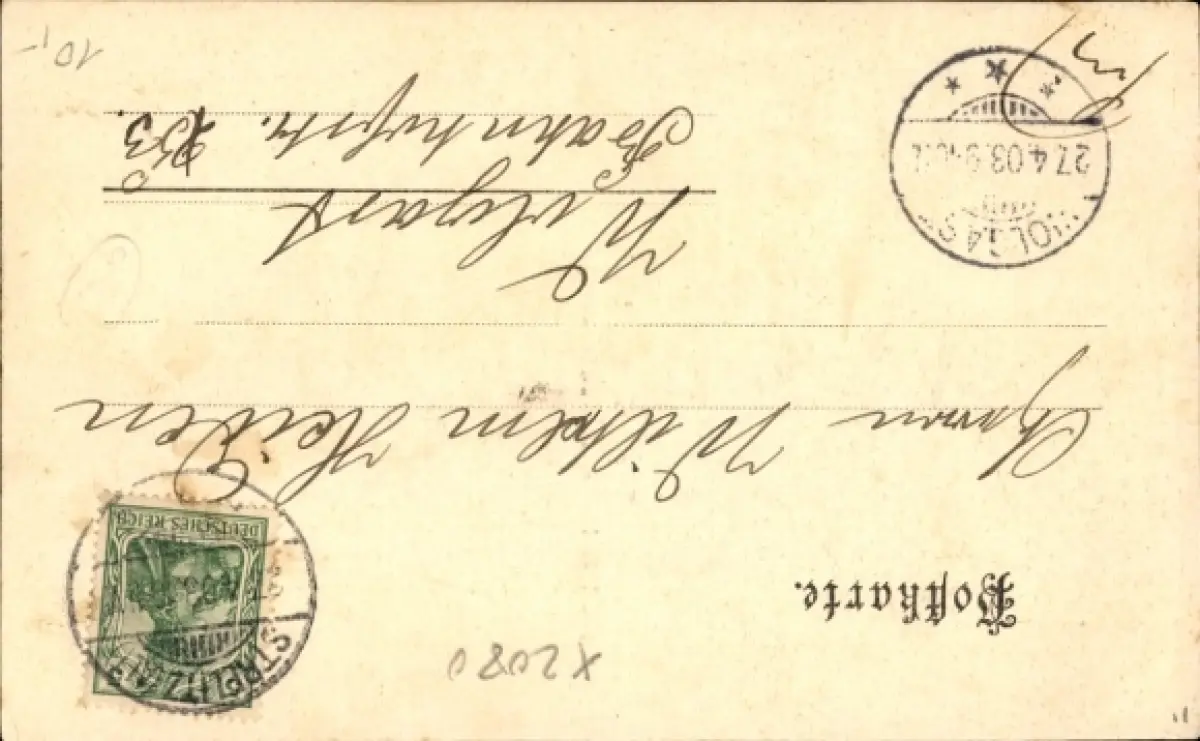 Postkarte.
X2080
DEUTSCHES REICH
Herrn Wilhelm Heiden
Wolgast
Bahnhofstr. 253.
WOLGAST
27.4.03.9-10
10,-